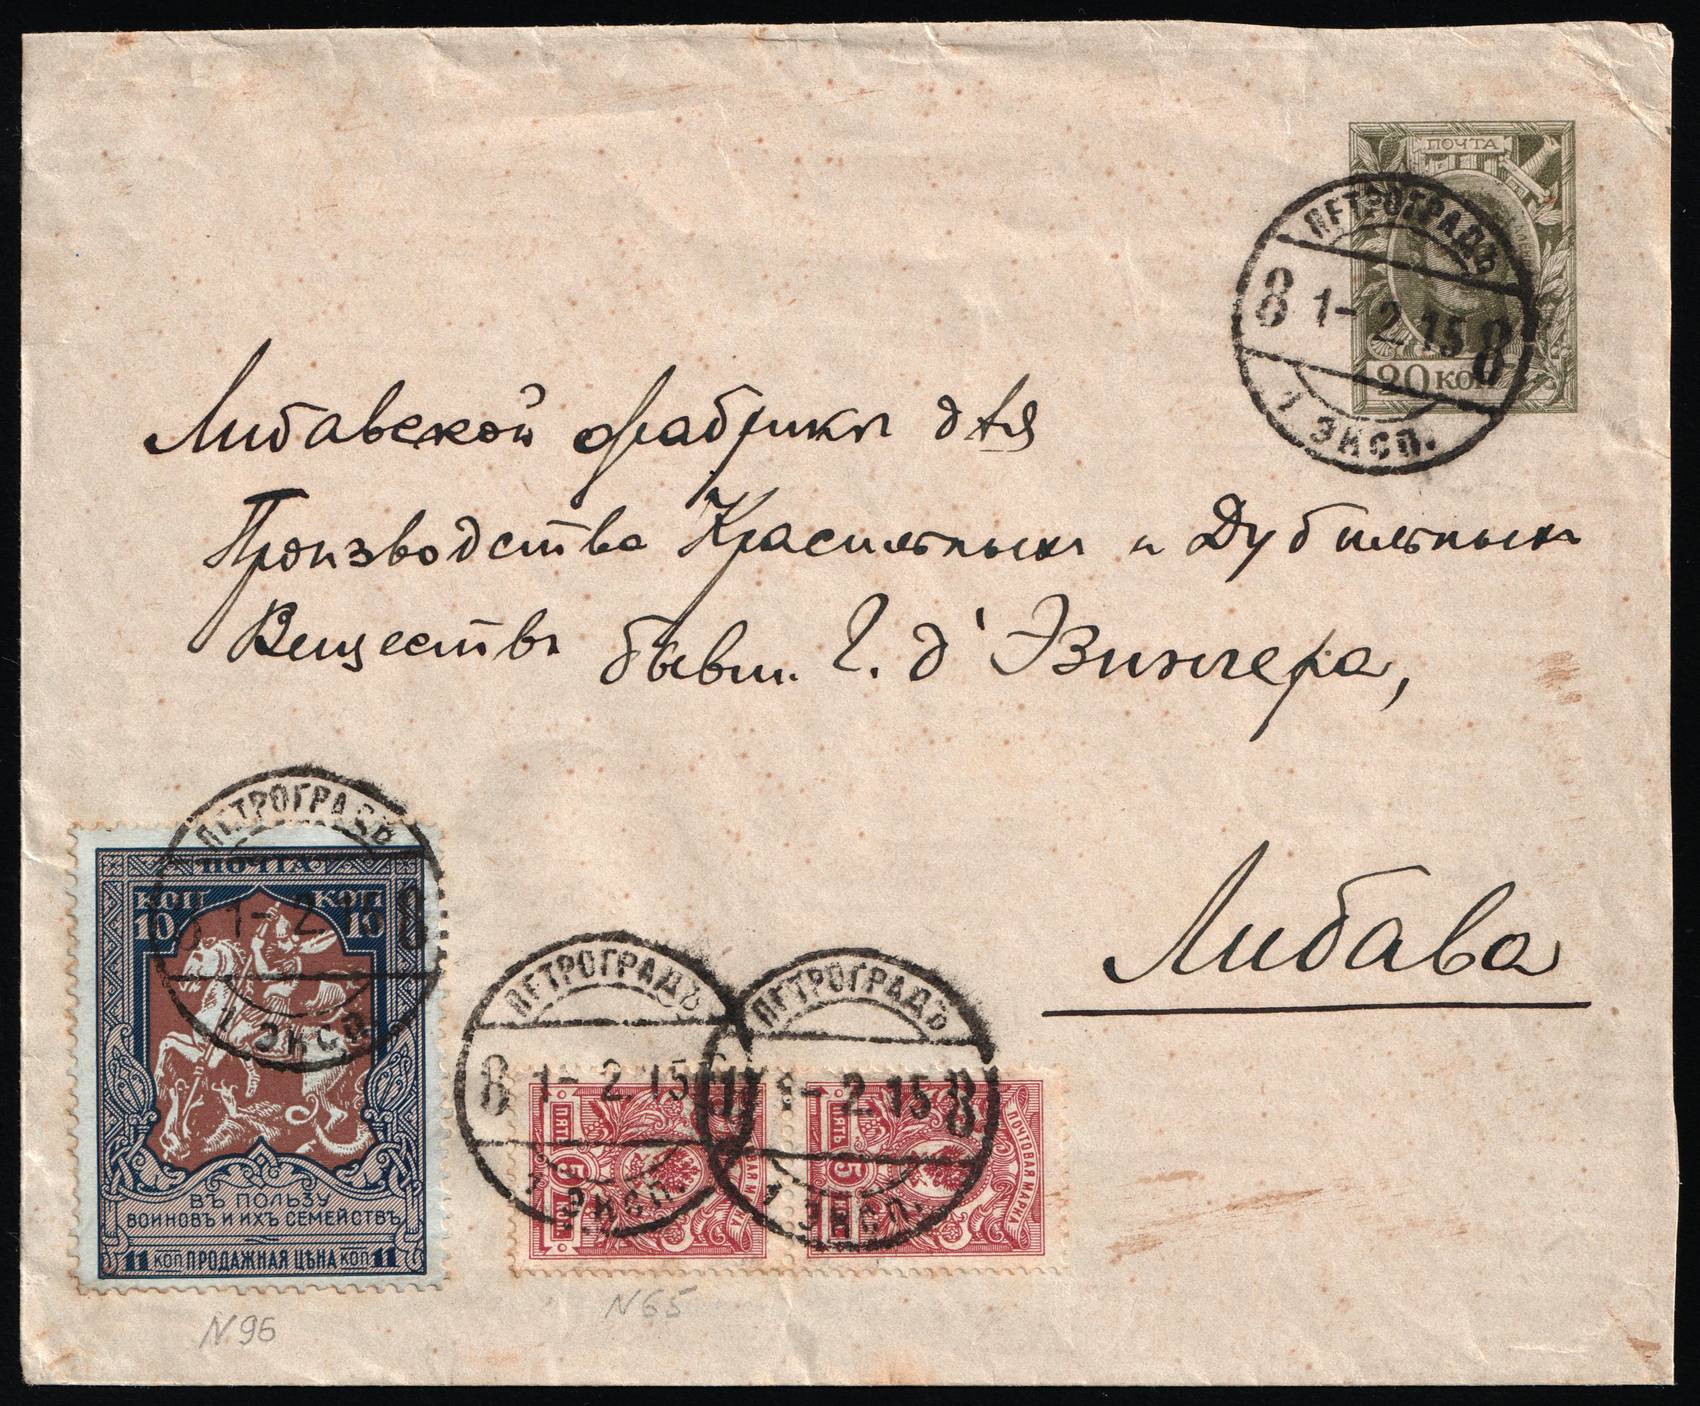 ПОЧТА
ПЕТРОГРАДЪ
8 1-2.15 8
20 КОП
1 ЭКСП.
Либавской фабрики для
Производства Красильныхъ и Дубильныхъ
Веществъ бывш. Г. д'Эзингера,
Либава
ПЕТРОГРАДЪ
ПОЧТА
КОП 10 КОП 10
8 1-2.15 8
1 ЭКСП.
ВЪ ПОЛЬЗУ
ВОИНОВЪ И ИХЪ СЕМЕЙСТВЪ
11 КОП ПРОДАЖНАЯ ЦѢНА КОП 11
ПЕТРОГРАДЪ
8 1-2.15 8
1 ЭКСП.
ПЯТЬ
5
ПОЧТОВАЯ МАРКА
ПЕТРОГРАДЪ
8 1-2.15 8
1 ЭКСП.
ПЯТЬ
5
ПОЧТОВАЯ МАРКА
N96
N65